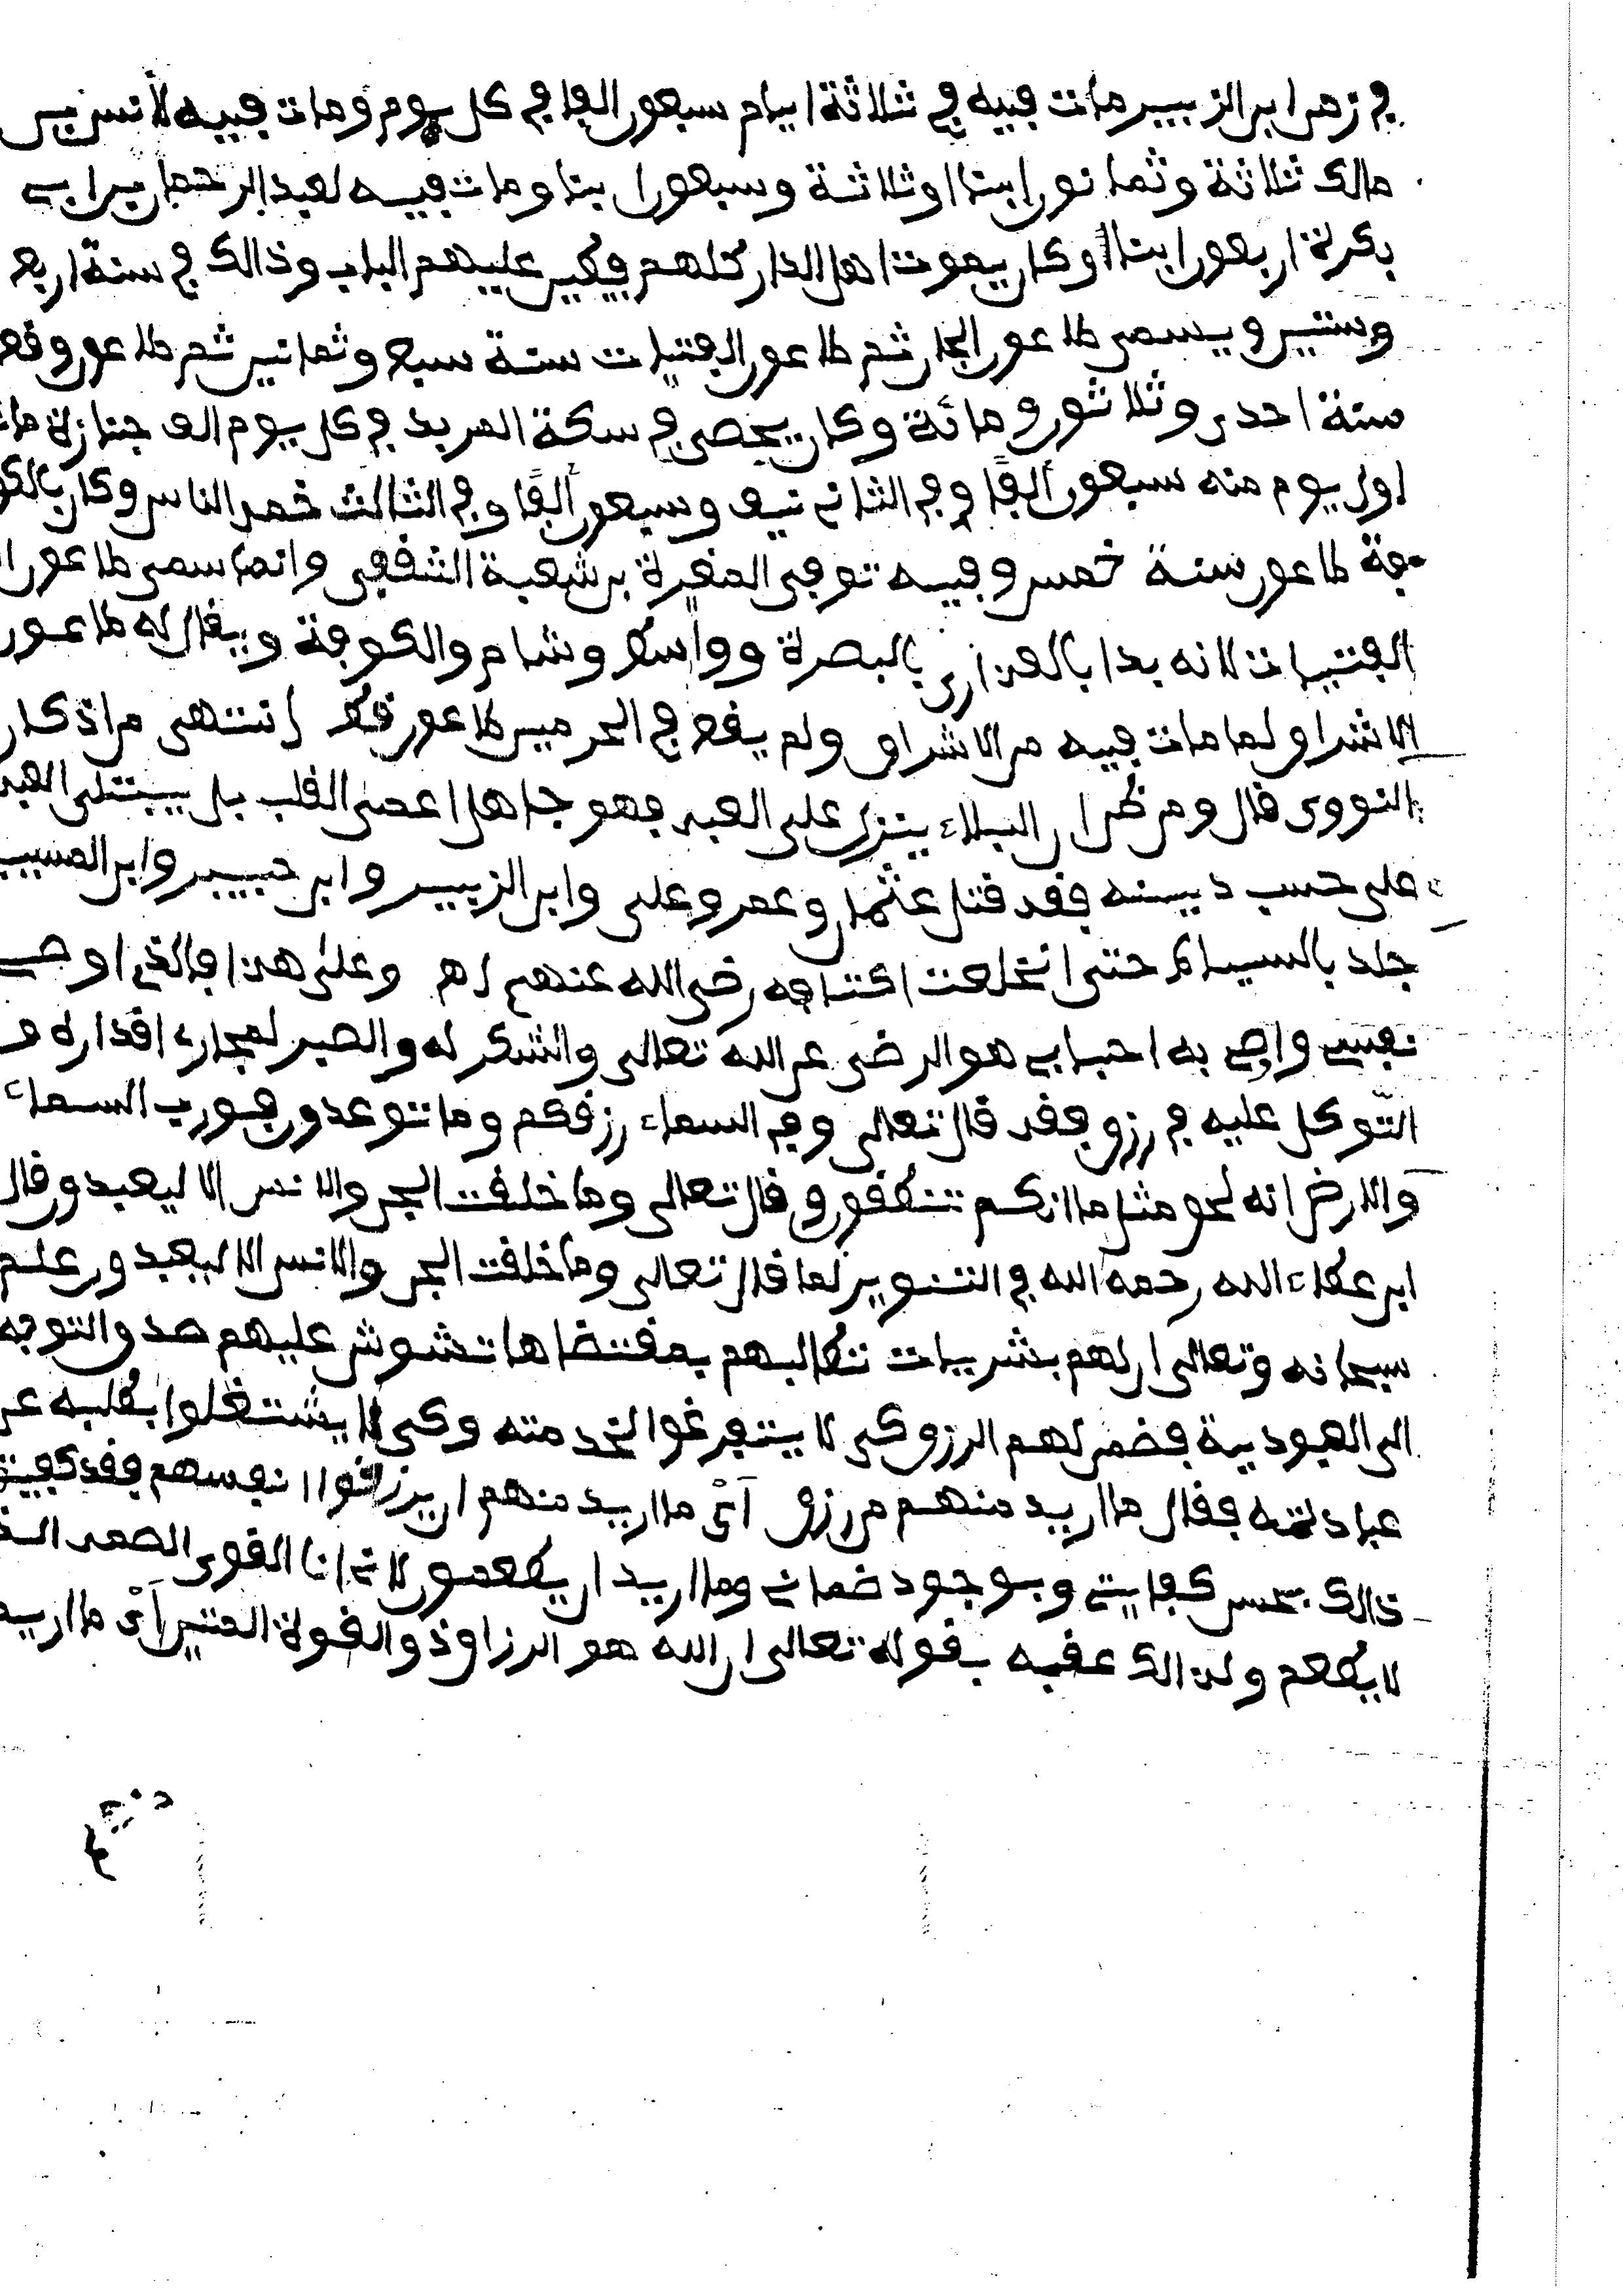 في زمن ابن الزبير مات فيه في ثلاثة ايام سبعون الفا في كل يوم ومات فيه لأنس بن
مالك ثلاثة وثمانون ابنا او ثلاثة وسبعون ابنا ومات فيه لعبد الرحمان بن ابي
بكرة اربعون ابنا وكان يموت اهل الدار كلهم فيطين عليهم الباب وذالك في سنة اربع
وستين ويسمى طاعون الجارف ثم طاعون الفتيات سنة سبع وثمانين ثم طاعون وقع
سنة احدى وثلاثون ومائة وكان يحصى في سكة المربد في كل يوم الف جنازة مات
اول يوم منه سبعون ألفًا وفي الثاني نيف وسبعون ألفًا وفي الثالث خمد الناس وكان بالكو
فة طاعون سنة خمس وفيه توفي المغيرة بن شعبة الثقفي وانما سمى طاعون
الفتيات لانه بدا بالعذارى بالبصرة وواسط وشام والكوفة ويقال له طاعون
الاشراف لما مات فيه من الاشراف ولم يقع في الحرمين طاعون قط انتهى من اذكار
النووى قال ومن ظن ان البلاء ينزل على العبد فهو جاهل اعمى القلب بل يبتلى العبد
على حسب دينه فقد قتل عثمان وعمر وعلى وابن الزبير وابن جبير وابن المسيب
جلد بالسياط حتى انخلعت اكتافه رضي الله عنهم اهـ وعلى هذا فالذي اوصي
نفسي واوصي به احبابي هو الرضى عن الله تعالى والشكر له والصبر لمجارى اقداره و
التّوكل عليه في رزق فقد قال تعالى وفي السماء رزقكم وما توعدون فورب السماء
والارض انه لحق مثل ما انكم تنطقون وقال تعالى وما خلقت الجن والانس الا ليعبدون قال
ابن عطاء الله رحمه الله في التنوير لما قال تعالى وما خلقت الجن والانس الا ليعبدون علم
سبحانه وتعالى ان لهم بشريات تطالبهم بمقتضاها تشوش عليهم صدق التوجه
الى العبودية فضمن لهم الرزق كى لا يتفرغوا لخدمته وكى لا يشتغلوا بطلبه عن
عبادته فقال ما اريد منهم من رزق أى ما اريد منهم ان يرزقوا انفسهم فقد كفيتهم
ذالك بحسن كفايتي وبوجود ضماني وما اريد ان يطعمون لاني انا القوى الصمد الذ
لا يطعم ولذالك عقبه بقوله تعالى ان الله هو الرزاق ذو القوة المتين أى ما اريد